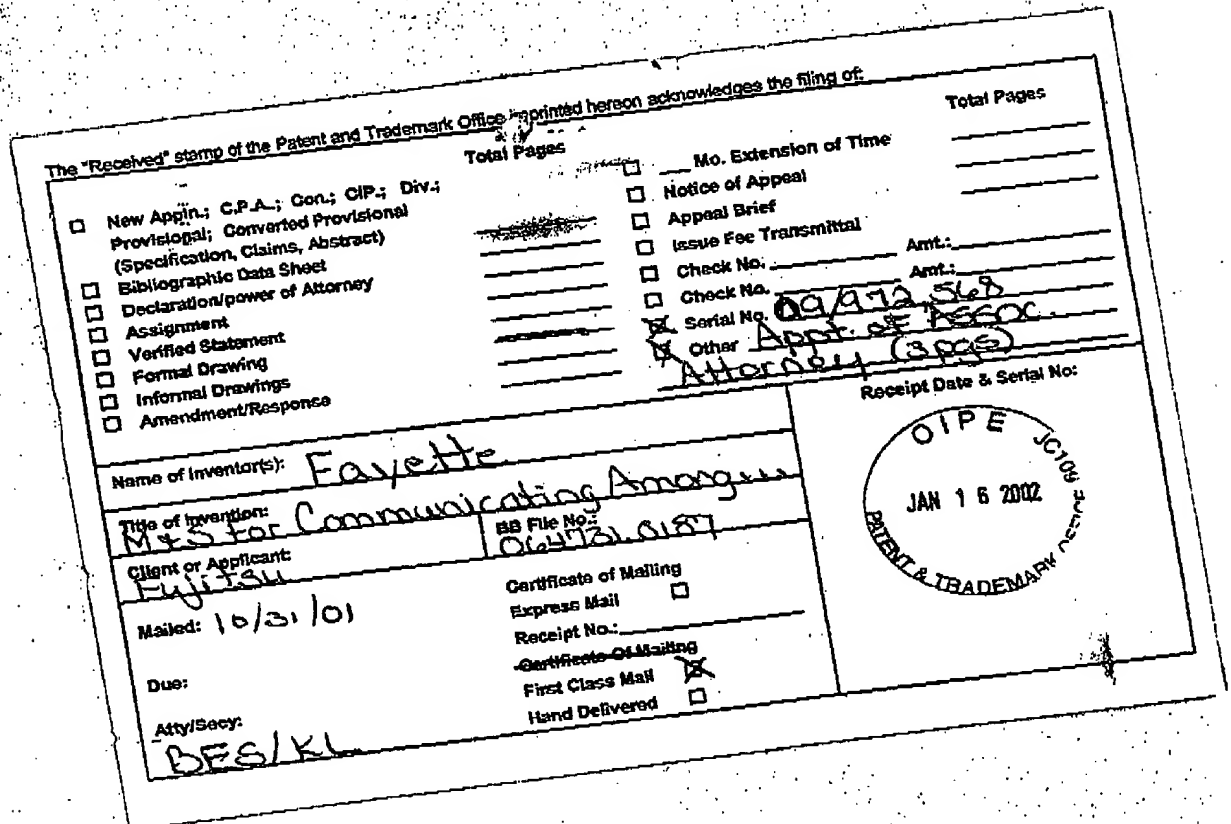 The "Received" stamp of the Patent and Trademark Office imprinted hereon acknowledges the filing of:
Total Pages
New Appln.; C.P.A.; Con.; CIP.; Div.;
Provisional; Converted Provisional
(Specification, Claims, Abstract)
Bibliographic Data Sheet
Declaration/power of Attorney
Assignment
Verified Statement
Formal Drawing
Informal Drawings
Amendment/Response
Total Pages
___ Mo. Extension of Time
Notice of Appeal
Appeal Brief
Issue Fee Transmittal
Check No. Amt.:
Check No. Amt.:
Serial No. 09/972,568
Other Appt. of Assoc.
Attorney (3 pgs)
Name of Inventor(s): Fayette
Title of Invention:
M&S for Communicating Among...
Client or Applicant:
Fujitsu
BB File No.:
064731.0187
Mailed: 10/31/01
Due:
Atty/Secy:
BFS/KL
Certificate of Mailing
Express Mail
Receipt No.:
Certificate Of Mailing
First Class Mail
Hand Delivered
Receipt Date & Serial No:
OIPE JC109
JAN 16 2002
PATENT & TRADEMARK OFFICE